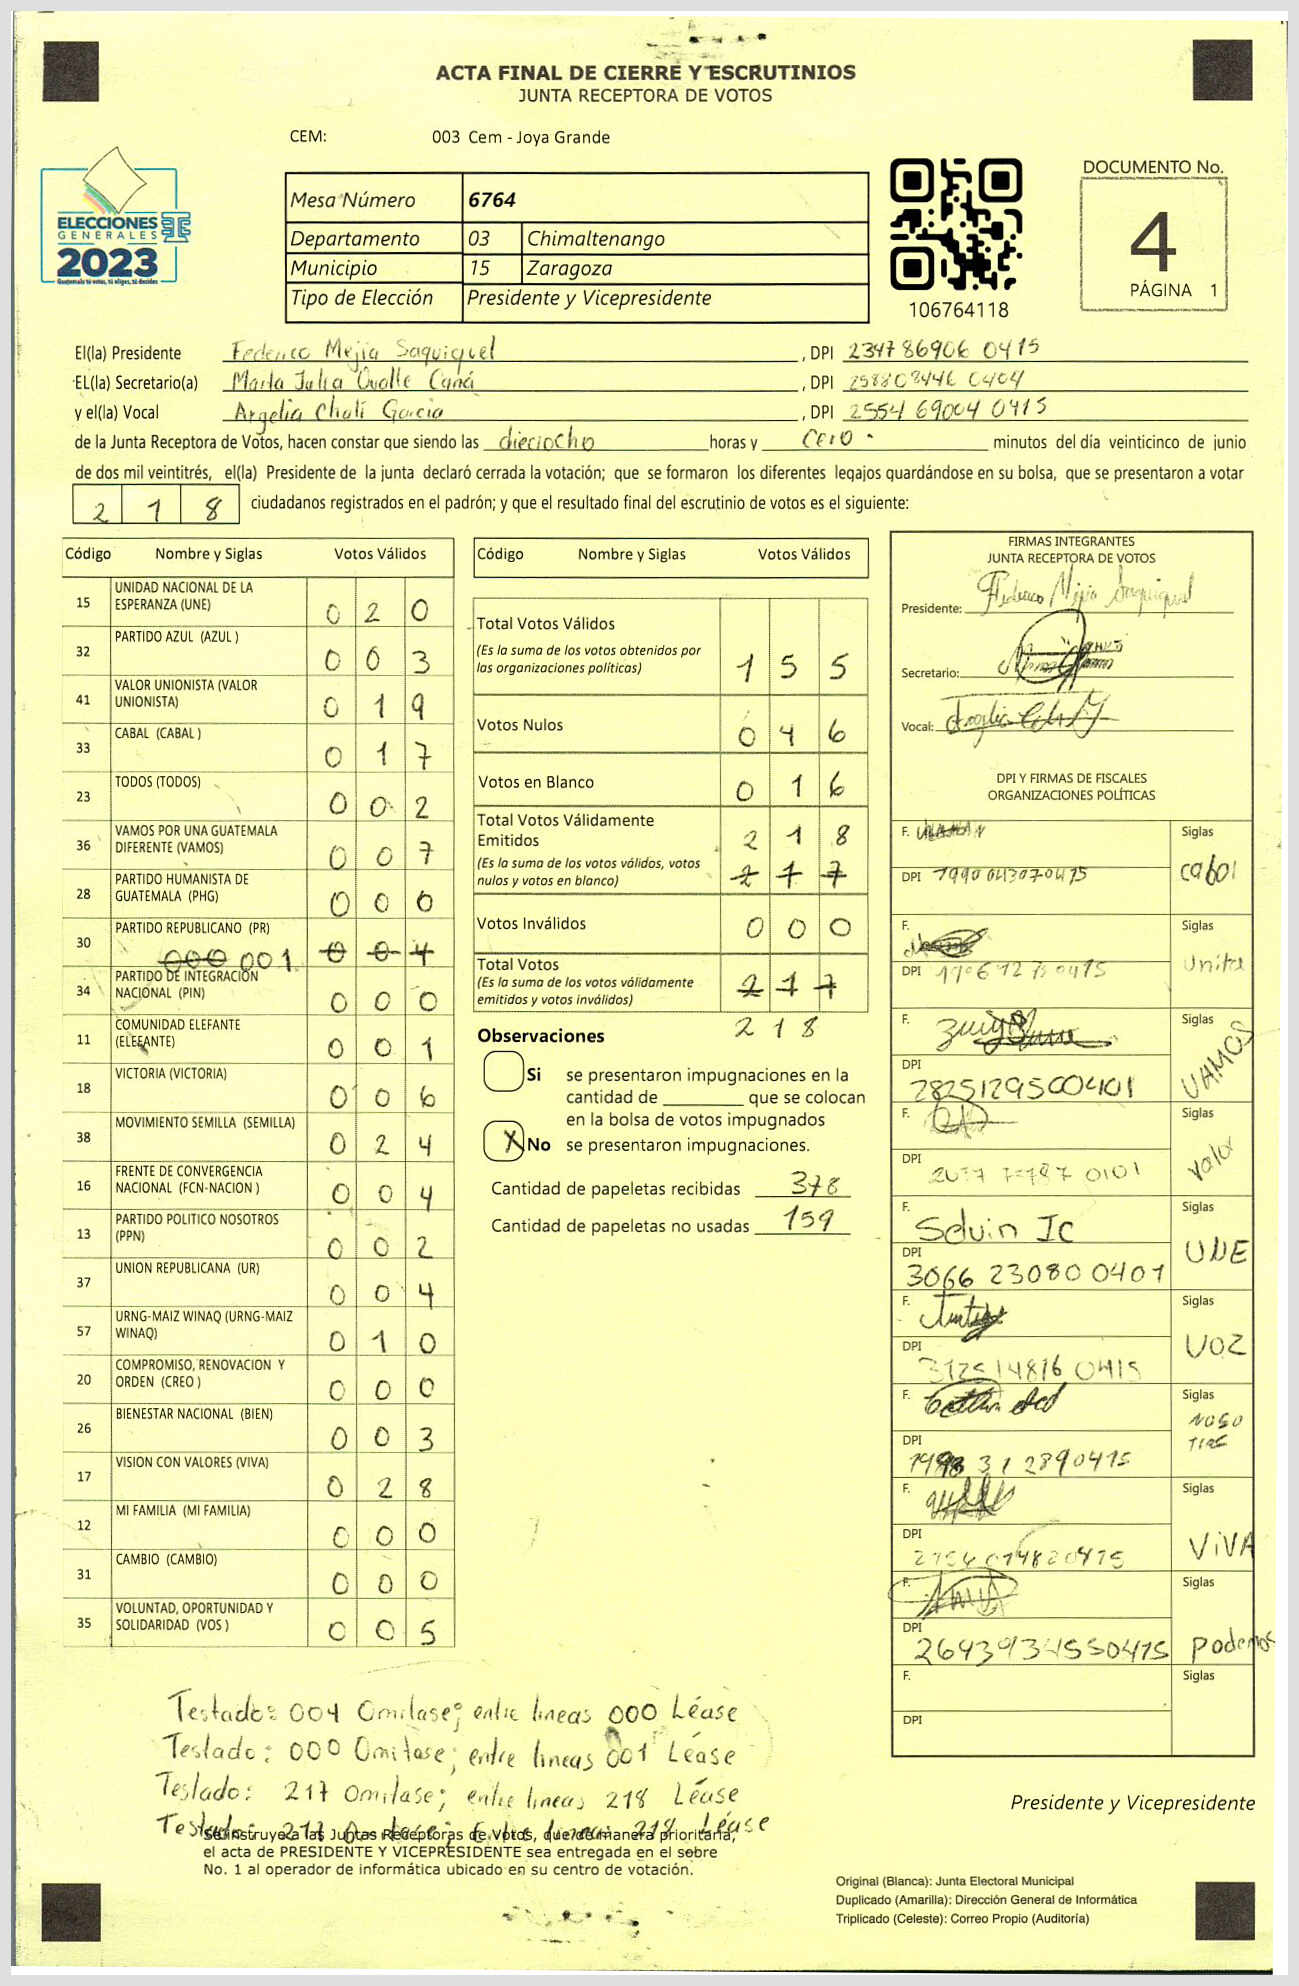 ACTA FINAL DE CIERRE Y ESCRUTINIOS
JUNTA RECEPTORA DE VOTOS
CEM: 003 Cem - Joya Grande
ELECCIONES
GENERALES
2023
Guatemala tú votas, tú eliges, tú decides
Mesa Número 6764
Departamento 03 Chimaltenango
Municipio 15 Zaragoza
Tipo de Elección Presidente y Vicepresidente
106764118
DOCUMENTO No.
4
PÁGINA 1
El(la) Presidente Federico Mejia Saquiquel , DPI 234786906 0415
EL(la) Secretario(a) Marta Julia Ovalle Caná , DPI 258808446 0404
y el(la) Vocal Argelia Chalí Garcia , DPI 2554 69004 0415
de la Junta Receptora de Votos, hacen constar que siendo las dieciocho horas y cero minutos del día veinticinco de junio
de dos mil veintitrés, el(la) Presidente de la junta declaró cerrada la votación; que se formaron los diferentes legajos quardándose en su bolsa, que se presentaron a votar
2 1 8 ciudadanos registrados en el padrón; y que el resultado final del escrutinio de votos es el siguiente:
Código Nombre y Siglas Votos Válidos
15 UNIDAD NACIONAL DE LA ESPERANZA (UNE) 0 2 0
32 PARTIDO AZUL (AZUL ) 0 0 3
41 VALOR UNIONISTA (VALOR UNIONISTA) 0 1 9
33 CABAL (CABAL ) 0 1 7
23 TODOS (TODOS) 0 0 2
36 VAMOS POR UNA GUATEMALA DIFERENTE (VAMOS) 0 0 7
28 PARTIDO HUMANISTA DE GUATEMALA (PHG) 0 0 0
30 PARTIDO REPUBLICANO (PR) 000 001 0 0 4
34 PARTIDO DE INTEGRACIÓN NACIONAL (PIN) 0 0 0
11 COMUNIDAD ELEFANTE (ELEFANTE) 0 0 1
18 VICTORIA (VICTORIA) 0 0 6
38 MOVIMIENTO SEMILLA (SEMILLA) 0 2 4
16 FRENTE DE CONVERGENCIA NACIONAL (FCN-NACION ) 0 0 4
13 PARTIDO POLITICO NOSOTROS (PPN) 0 0 2
37 UNION REPUBLICANA (UR) 0 0 4
57 URNG-MAIZ WINAQ (URNG-MAIZ WINAQ) 0 1 0
20 COMPROMISO, RENOVACION Y ORDEN (CREO ) 0 0 0
26 BIENESTAR NACIONAL (BIEN) 0 0 3
17 VISION CON VALORES (VIVA) 0 2 8
12 MI FAMILIA (MI FAMILIA) 0 0 0
31 CAMBIO (CAMBIO) 0 0 0
35 VOLUNTAD, OPORTUNIDAD Y SOLIDARIDAD (VOS ) 0 0 5
Código Nombre y Siglas Votos Válidos
Total Votos Válidos
(Es la suma de los votos obtenidos por
las organizaciones políticas) 1 5 5
Votos Nulos 0 4 6
Votos en Blanco 0 1 6
Total Votos Válidamente
Emitidos 2 1 8
(Es la suma de los votos válidos, votos
nulos y votos en blanco) 2 1 7
Votos Inválidos 0 0 0
Total Votos
(Es la suma de los votos válidamente
emitidos y votos inválidos) 2 1 7
2 1 8
Observaciones
Si se presentaron impugnaciones en la
cantidad de ________ que se colocan
en la bolsa de votos impugnados
X No se presentaron impugnaciones.
Cantidad de papeletas recibidas 378
Cantidad de papeletas no usadas 159
FIRMAS INTEGRANTES
JUNTA RECEPTORA DE VOTOS
Presidente: Federico Mejia Saquiquel
Secretario:
Vocal:
DPI Y FIRMAS DE FISCALES
ORGANIZACIONES POLÍTICAS
F. Siglas
DPI 1990 043070415 cabal
F. Siglas
DPI Unita
F. Siglas
DPI VAMOS
282512950 0401
F. Siglas
DPI valor
F. Siglas
Selvin Ic
DPI UNE
3066 23080 0401
F. Siglas
DPI VOZ
312514816 0415
F. Siglas
DPI
F. Siglas
DPI ViVA
F. Siglas
DPI
2643934550415 Podemos
F. Siglas
DPI
Testado: 004 Omitase; entre lineas 000 Léase
Testado: 000 Omitase; entre lineas 001 Léase
Testado: 217 Omitase; entre lineas 218 Léase
Testado: 217 Omitase; Entre lineas 218 Léase
Se instruye a las Juntas Receptoras de Votos, que de manera prioritaria,
el acta de PRESIDENTE Y VICEPRESIDENTE sea entregada en el sobre
No. 1 al operador de informática ubicado en su centro de votación.
Presidente y Vicepresidente
Original (Blanca): Junta Electoral Municipal
Duplicado (Amarilla): Dirección General de Informática
Triplicado (Celeste): Correo Propio (Auditoría)